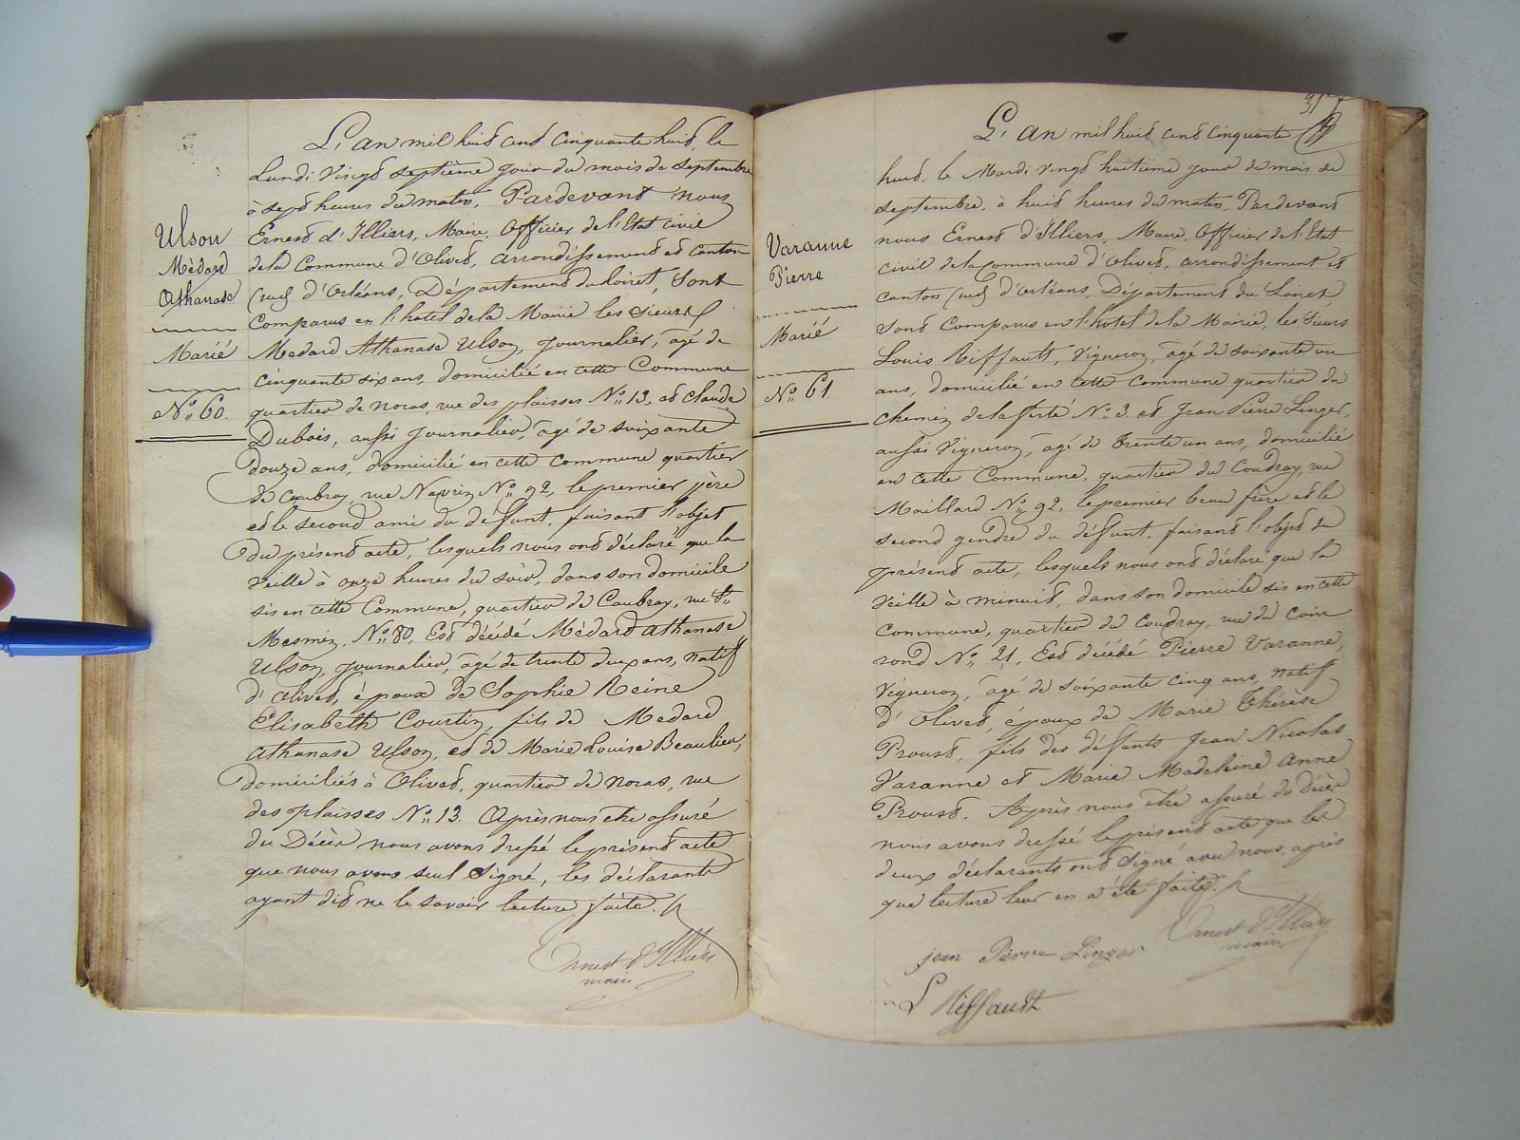 Ulson
Médard
Athanase
Marié
N° 60.
L'an mil huit cent cinquante huit, le
Lundi Vingt septième jour du mois de septembre
à sept heures du matin, Pardevant nous
Ernest d'Illiers, Maire, Officier de l'Etat civil
de la Commune d'Olivet, arrondissement et canton
(sud) d'Orléans, Département du Loiret, Sont
Comparus en l'hotel de la Mairie les sieurs
Medard Athanase Ulson, journalier, agé de
cinquante six ans, domicilié en cette Commune
quartier de noras, rue des plaisses N° 13. et Claude
Dubois, aussi journalier, agé de soixante
douze ans, domicilié en cette commune quartier
de Caubray, rue N° 92, le premier père
et le second ami du défunt, faisant l'objet
du présent acte, lesquels nous ont déclaré que la
veille à onze heures du soir, dans son domicile
sis en cette Commune, quartier de Caubray, rue St
Mesmin, N° 80, Est décédé Médard Athanase
Ulson, journalier, agé de trente deux ans, natif
d'Olivet, époux de Sophie Reine
Elisabeth Courtin, fils de Medard
Athanase Ulson, et de Marie Louise Beaulieu,
domiciliés à Olivet, quartier de noras, rue
des plaisses N° 13. Après nous être assuré
du Décès nous avons dressé le présent acte
que nous avons seul signé, les déclarants
ayant dit ne le savoir lecture faite.
Ernest d'Illiers
maire
Varanne
Pierre
Marié
N° 61
L'an mil huit cent cinquante
huit, le Mardi vingt huitième jour du mois de
septembre, à huit heures du matin, Pardevant
nous Ernest d'Illiers, Maire, Officier de l'Etat
civil de la commune d'Olivet, arrondissement et
canton (sud) d'Orléans, Département du Loiret
sont Comparus en l'hotel de la Mairie, les sieurs
Louis Riffault, Vigneron, agé de soixante un
ans, domicilié en cette commune quartier du
chemin de la ferté N° 3. et Jean Pierre Linger,
aussi Vigneron, agé de trente un ans, domicilié
en cette Commune, quartier du Coudray, rue
Maillard N° 92, le premier beau frère et le
second gendre du défunt, faisant l'objet du
présent acte, lesquels nous ont déclaré que la
veille à minuit, dans son domicile sis en cette
Commune, quartier du Coudray, rue du Coin
rond N° 21, Est décédé Pierre Varanne,
Vigneron, agé de soixante cinq ans, natif
d'Olivet, époux de Marie Thérèse
Proust, fils des défunts Jean Nicolas
Varanne et Marie Madeleine Anne
Proust. Après nous être assuré du décès
nous avons dressé le présent acte que les
deux déclarants ont signé avec nous, après
que lecture leur en a été faite.
Ernest d'Illiers
maire
jean Pierre Linger
L Riffault